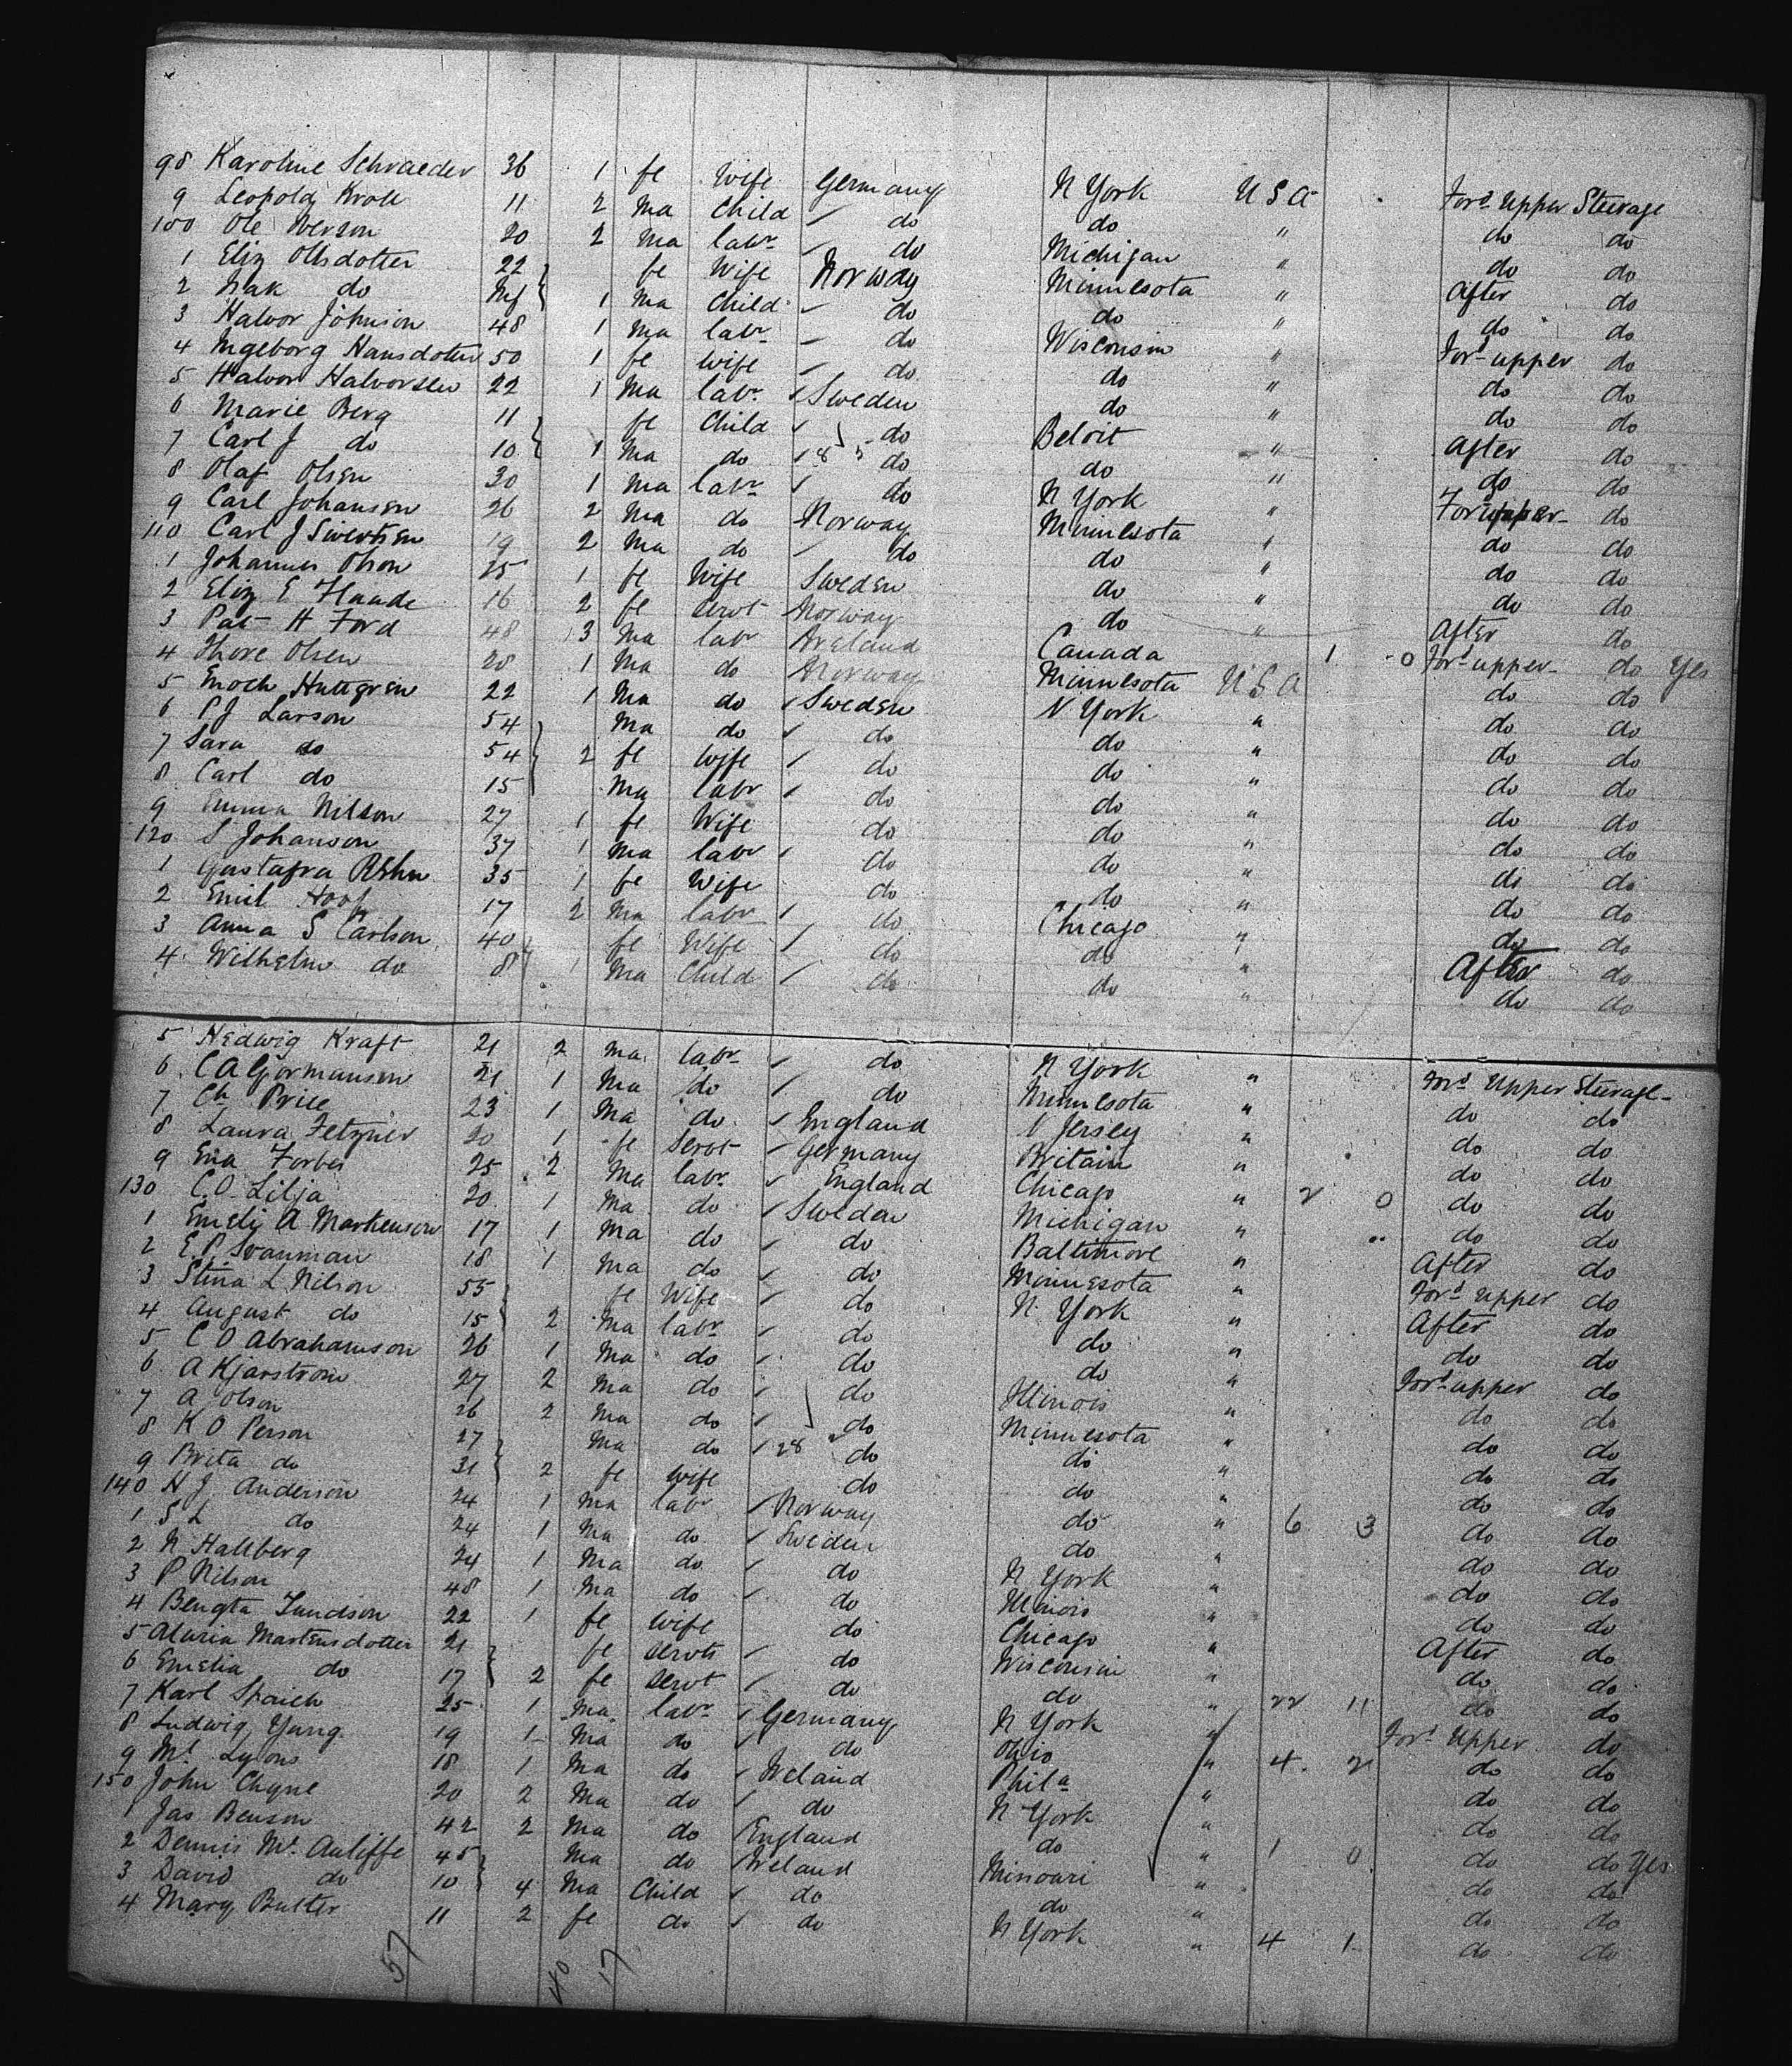 98 Karoline Schraeder 36 1 fe Wife Germany N York USA For'd Upper Steerage
9 Leopold Kroll 11 2 Ma Child do do " do do
100 Ole Iverson 20 2 Ma labr do Michigan " do do
1 Eliz Olsdotter 22 fe Wife Norway Minnesota " After do
2 Isak do 1 Ma Child do do " do do
3 Halvor Johnson 48 1 Ma labr do Wisconsin " For'd upper do
4 Ingeborg Hansdotter 50 1 fe Wife do do " do do
5 Halvor Halvorsen 22 1 Ma labr Sweden do " do do
6 Marie Berg 11 fe Child do Beloit " After do
7 Carl J do 10 1 Ma do 8 5 do do " do do
8 Olaf Olsen 30 1 Ma labr do N York " For upper do
9 Carl Johansen 26 2 Ma do Norway Minnesota " do do
110 Carl J Sivertsen 19 2 Ma do do do " do do
1 Johannes Olson 25 1 fe Wife Sweden do " do do
2 Eliz E Flaade 16 2 fe servt Norway do " After do
3 Pat H Ford 48 3 Ma labr Ireland Canada 1 0 For'd upper do Yes
4 Thore Olsen 28 1 Ma do Norway Minnesota USA do do
5 Enoch Hultgren 22 1 Ma do Sweden N York " do do
6 P J Larson 54 Ma do do do " do do
7 Sara do 54 2 fe Wife do do " do do
8 Carl do 15 Ma labr do do " do do
9 Emma Nilson 27 1 fe Wife do do " do do
120 S Johanson 37 1 Ma labr do do " do do
1 Gustafva Rehn 35 1 fe Wife do do " do do
2 Emil Hoof 17 2 Ma labr do Chicago " do do
3 Anna S Carlson 40 fe Wife do do " After do
4 Wilhelm do 8 1 Ma Child do do " do do
5 Hedwig Kraft 21 2 Ma labr do N York " For'd Upper Steerage
6 C A Gormanson 21 1 Ma do do Minnesota " do do
7 Ch Price 23 1 Ma do England N Jersey " do do
8 Laura Fetzner 20 1 fe Servt Germany Britain " do do
9 Ena Forbes 25 2 Ma labr England Chicago " 2 0 do do
130 C.O. Lilja 20 1 Ma do Sweden Michigan " do do
1 Emely A Markenson 17 1 Ma do do Baltimore " After do
2 E.P. Svanman 18 1 Ma do do Minnesota " For'd upper do
3 Stina L Nilson 55 fe Wife do N. York " After do
4 August do 15 2 Ma labr do do " do do
5 C O Abrahamson 26 1 Ma do do do " For'd upper do
6 A Kjarstrom 27 2 Ma do do Illinois " do do
7 A Olson 26 2 Ma do do Minnesota " do do
8 K O Person 27 Ma do 28 do do " do do
9 Brita do 31 2 fe Wife do do " do do
140 H J Anderson 24 1 Ma labr Norway do " 6 3 do do
1 S L do 24 1 Ma do Sweden do " do do
2 N Hallberg 24 1 Ma do do N York " do do
3 P Nilson 48 1 Ma do do Illinois " do do
4 Bengta Lundson 22 1 fe Wife do Chicago " After do
5 Maria Martensdotter 21 fe servts do Wisconsin " do do
6 Emelia do 17 2 fe servt do do " 22 11 do do
7 Karl Spaich 25 1 Ma labr Germany N York " For'd Upper do
8 Ludwig Yung 19 1 Ma do do Ohio " 4 2 do do
9 Ml Lyons 18 1 Ma do Ireland Phila " do do
150 John Chyne 20 2 Ma do do N York " do do
1 Jas Benson 42 2 Ma do England do " 1 0 do do Yes
2 Dennis Mc Auliffe 45 Ma do Ireland Missouri " do do
3 David do 10 4 Ma Child do do " do do
4 Mary Butter 11 2 fe do do N York " 4 1 do do
57 40 17